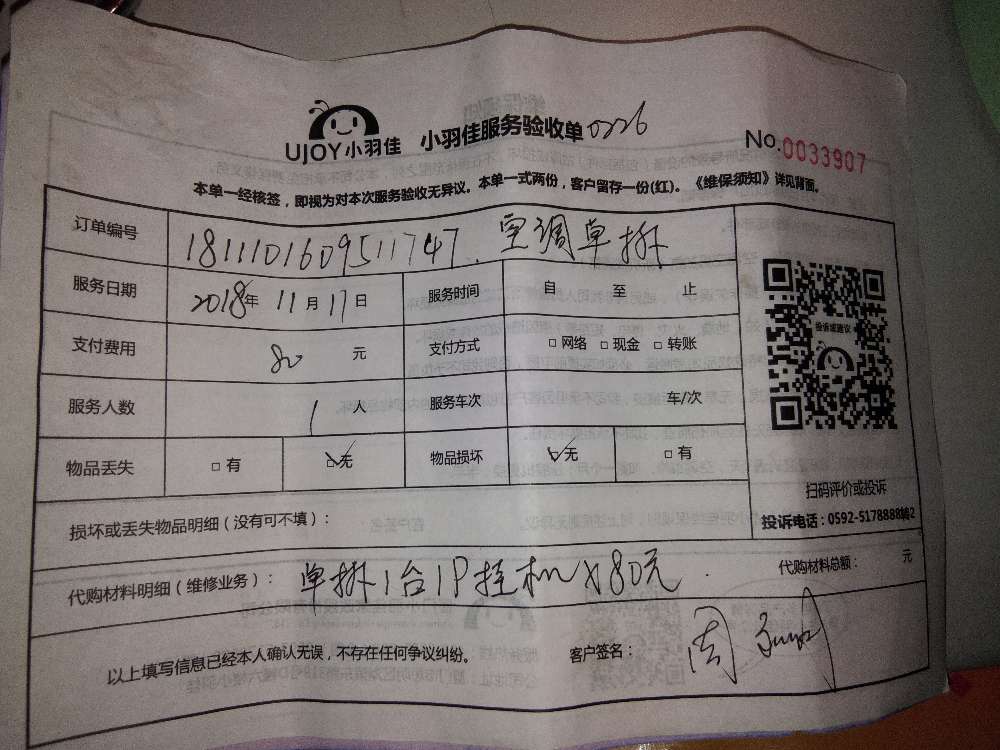 UJOY小羽佳 小羽佳服务验收单 0226
No.0033907
本单一经核签，即视为对本次服务验收无异议。本单一式两份，客户留存一份(红)。《维保须知》详见背面。
订单编号 181110160951174​7. 空调单拆
服务日期 2018年 11月 17日 服务时间 自 至 止
支付费用 80 元 支付方式 □ 网络 □ 现金 □ 转账
服务人数 1 人 服务车次 车/次
物品丢失 □ 有 ☑ 无 物品损坏 ☑ 无 □ 有
投诉或建议
扫码评价或投诉
投诉电话：0592-5178888转2
损坏或丢失物品明细（没有可不填）：
代购材料明细（维修业务）： 单拆1台1P挂机 x 80元 代购材料总额： 元
以上填写信息已经本人确认无误，不存在任何争议纠纷。 客户签名： 周